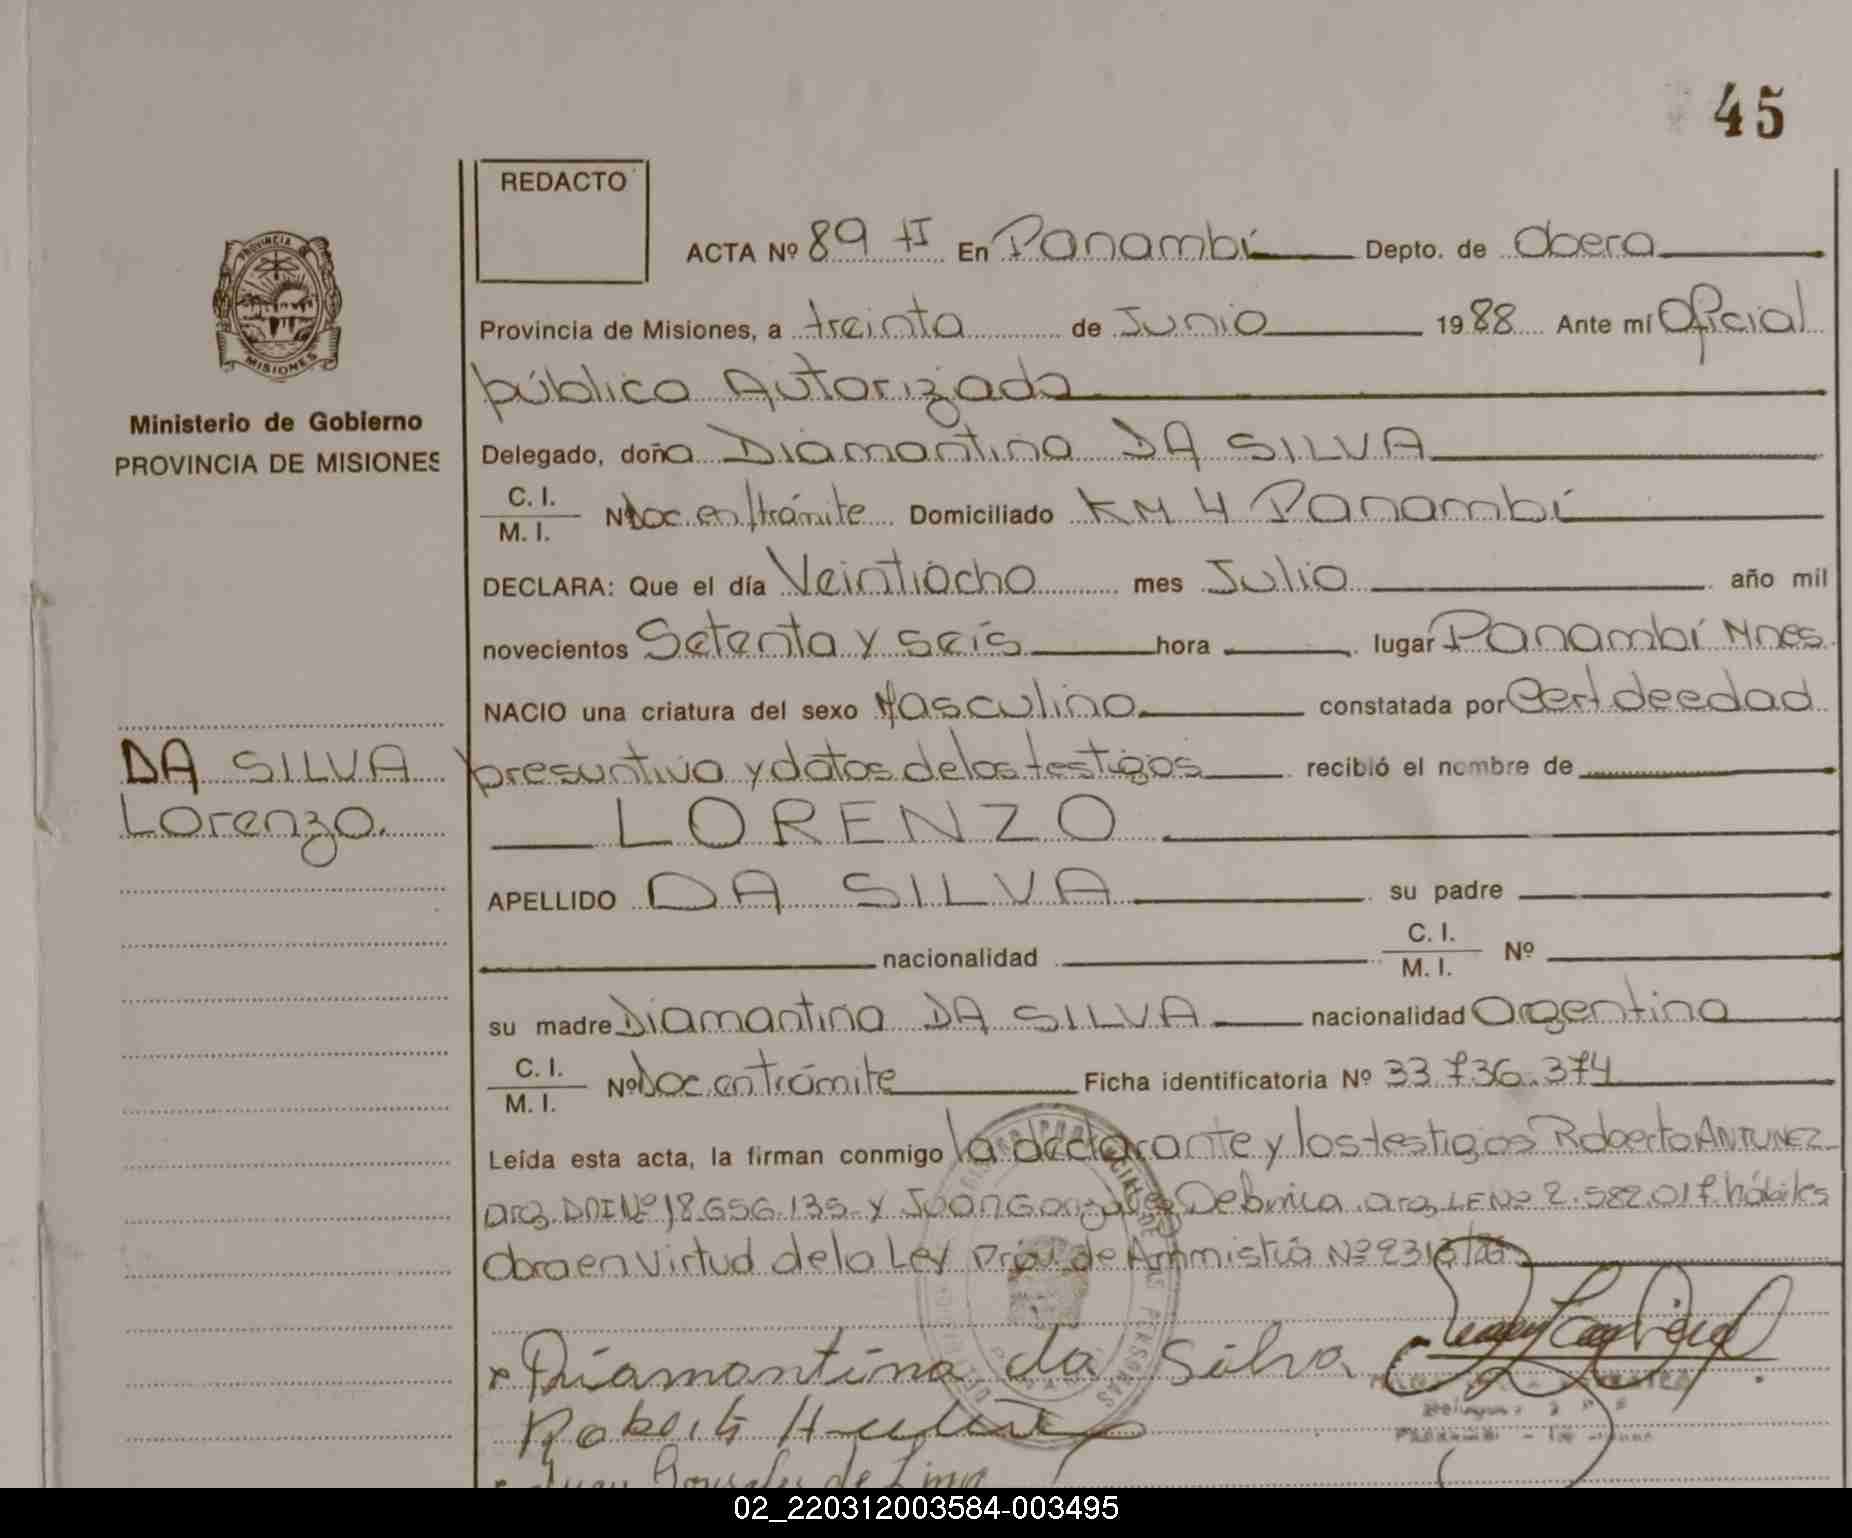 45
REDACTO
ACTA Nº 89 tI En Panambí Depto. de Obera
PROVINCIA DE
MISIONES
Provincia de Misiones, a treinta de Junio 1988 Ante mí Oficial
público Autorizado
Ministerio de Gobierno
PROVINCIA DE MISIONES
Delegado, doña Diamantina DA SILVA
C. I.
M. I. Nº Doc. en trámite Domiciliado KM 4 Panambí
DECLARA: Que el día Veintiocho mes Julio año mil
novecientos Setenta y seis hora lugar Panambí Mnes.
NACIO una criatura del sexo Masculino constatada por Cert de edad
DA SILVA
Lorenzo.
presuntiva y datos de los testigos recibió el nombre de
LORENZO
APELLIDO DA SILVA su padre
nacionalidad C. I.
M. I. Nº
su madre Diamantina DA SILVA nacionalidad Argentina
C. I.
M. I. Nº Doc. en trámite Ficha identificatoria Nº 33.736.374
Leída esta acta, la firman conmigo la declarante y los testigos Roberto ANTUNEZ
arg. DNI Nº 18.656.135 y Juan Gonzales De arg. LE Nº 2.582.017 hábiles
Obra en virtud de la Ley Prov. de Ammistía Nº 2313
Diamantina da Silva
Roberto
Juan Gonzales de Lima
02_220312003584-003495